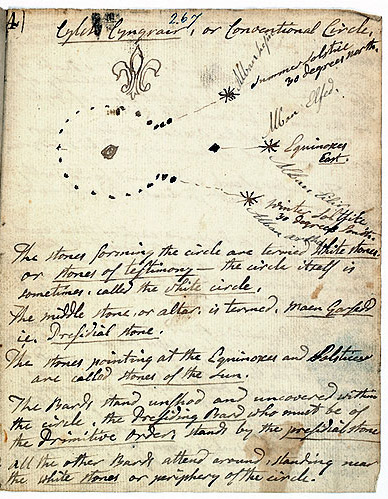 4
267
Cylch Cyngrair, or Conventional Circle.
Alban
Summer solstice
30 degrees north.
Alban Elfed.
Equinoxes
East.
Alban
Winter Solstice
30 degrees South.
Alban
The stones forming the circle are termed white stones
or stones of testimony — the circle itself is
sometimes called the white circle.
The middle stone, or altar, is termed, Maen Gorsedd
ie. Presidial stone.
The stones pointing at the Equinoxes and Solstices
are called stones of the sun.
The Bards stand unshod and uncovered within
the circle. the Presiding Bard who must be of
the Primitive Order, stands by the presidial stone
all the other Bards attend around, standing near
the white stones or periphery of the circle.